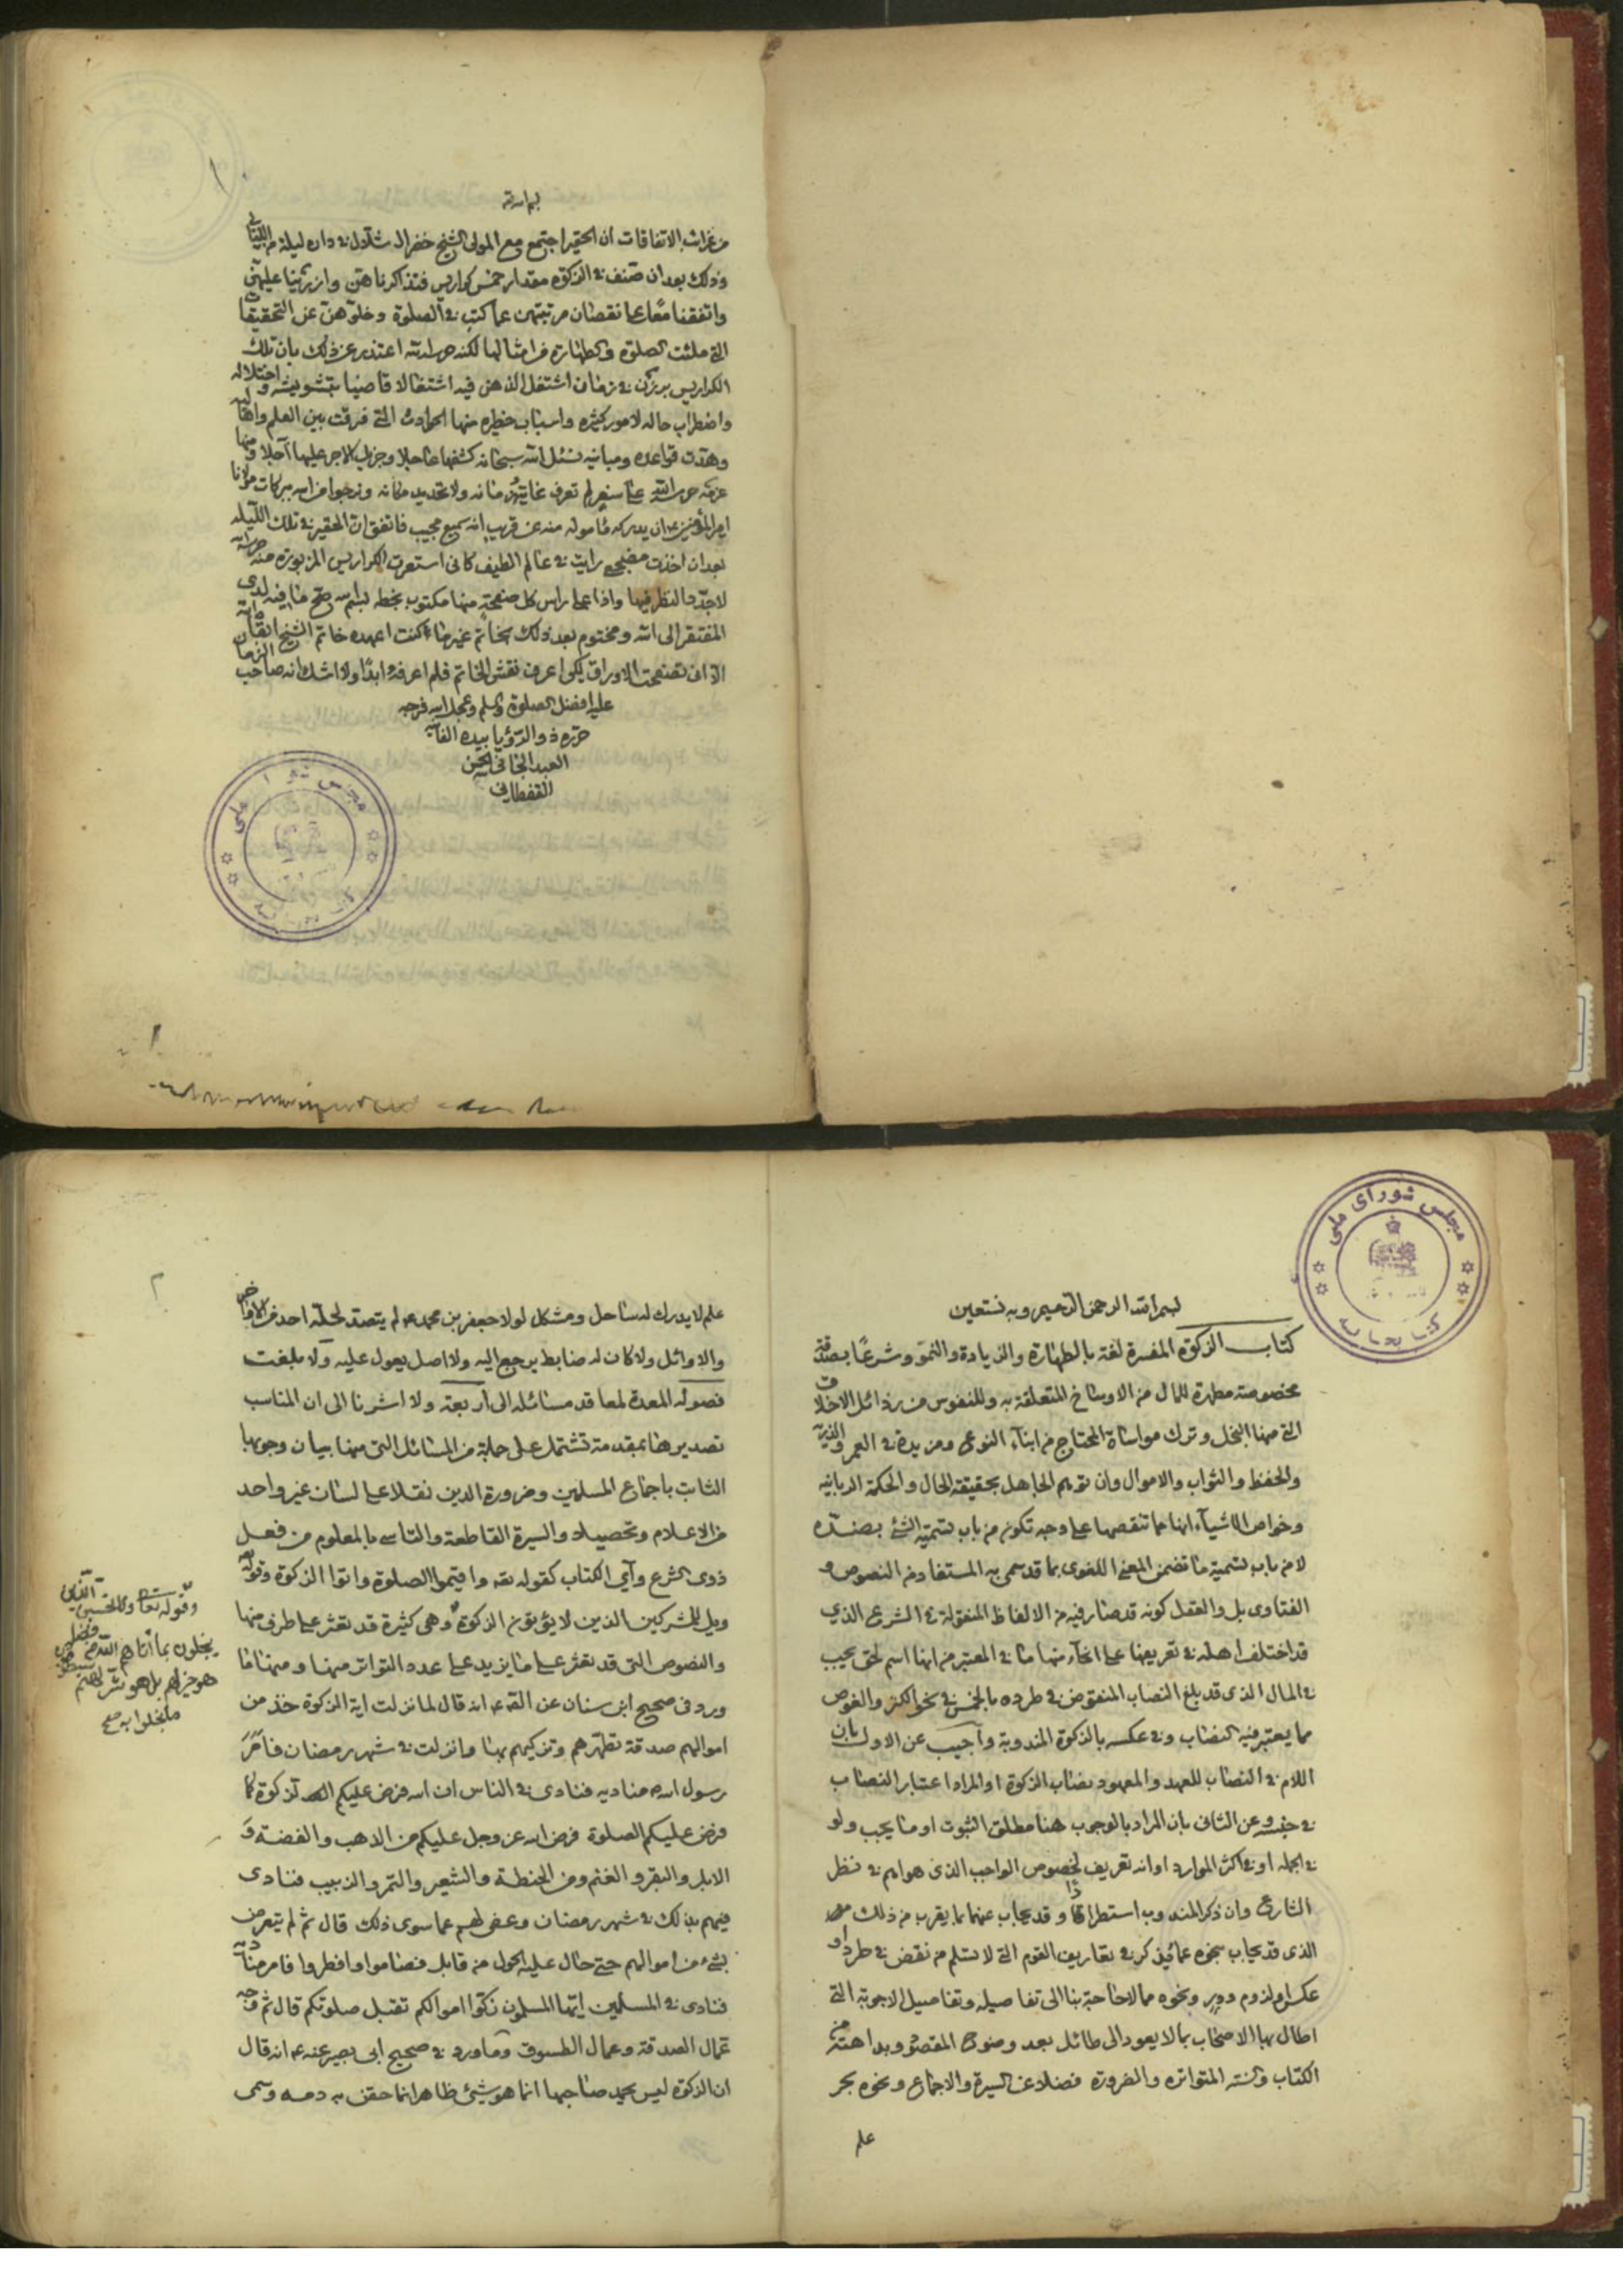 بسم الله
من غرائب الاتفاقات ان الحقير اجتمع مع المولى الشيخ خضر ال شلال في داره ليلة من الليالي
وذلك بعد ان صنف في الزكوة مقدار خمس كواريس فتذاكرنا هن
واتفقنا معًا على نقصان مرتبتهن عما كتب في الصلوة وخلوهن عن التحقيقات
التي ملئت الصلوة والطهارة من امثالها لكنه اعتذر عن ذلك بان تلك
الكراريس برزن في زمان اشتغل الذهن فيه اشتغالا قاضيا بتشويشه واختلاله
واضطراب حاله لامور كثيرة واسباب خطيرة منها الحوادث التي فرقت بين العلم واهله
وهدت قواعده ومبانيه نسئل الله سبحانه كشفها عاجلا وجزيل الاجر عليها اجلا ومنها
عزمه على سفر لم تعرف غايته زمانه ولا تحديد مكانه ونرجوا من الله ببركات مولانا
امير المؤمنين ان يدركه مأموله منه عن قريب انه سميع مجيب فاتفق ان الحقير في تلك الليلة
بعد ان اخذت مضجعي رايت في عالم الطيف كاني استعرت الكراريس المزبورة منه
لاجدد النظر فيها واذا على راس كل صفحة منها مكتوب بخطه بسم الله صح ما فيه لدى
المفتقر الى الله ومختوم بعد ذلك بخاتم غير ما كنت اعهده خاتم الشيخ ابقاه الله
الا اني تصفحت الاوراق لكي اعرف نقش الخاتم فلم اعرفه ابدًا ولا اشك انه صاحب الزمان
عليه افضل الصلوة والسلم وعجل الله فرجه
حرره ذو الرؤيا بيده الفانية
العبد الجاني حسن
القفطاني
مجلس شورای ملی
کتابخانه
مجلس شورای ملی
کتابخانه
بسم الله الرحمن الرحيم وبه نستعين
كتاب الزكوة المفسرة لغة بالطهارة والزيادة والنمو وشرعًا بصدقة
مخصوصة مطهرة للمال من الاوساخ المتعلقة به وللنفوس من رذائل الاخلاق
التي منها البخل وترك مواساة المحتاج من ابناء النوع ومزيدة في العمر والذرية
والحفظ والثواب والاموال وان توهم الجاهل بحقيقة الحال والحكمة الربانية
وخواص الاشياء انها مما تنقصها على وجه تكون من باب تسمية الشئ بضده
لا من باب تسمية ما تضمن المعنى اللغوى بما قد سمى به المستفاد من النصوص و
الفتاوى بل والعقل كونه قد صار فيه من الالفاظ المنقولة في الشرع الذي
قد اختلف اهله في تعريفها على انحاء منها ما في المعتبر من انها اسم لحق يجيب
في المال الذى قد بلغ النصاب المنقوض في طرده بالخمس في نحو الكنز والغوص
مما يعتبر فيه النصاب وفي عكسه بالزكوة المندوبة واجيب عن الاول بان
اللام في النصاب للعهد والمعهود نصاب الزكوة او المراد اعتبار النصاب
في جنسه وعن الثانى بان المراد بالوجوب هنا مطلق الثبوت او ما يجب ولو
في الجملة او في اكثر الموارد او انه تعريف لخصوص الواجب الذى هو اهم في نظر
الشارع وان ذكر المندوب استطرادًا وقد يجاب عنها بما يقرب من ذلك
الذى قد يجاب بنحوه عما يذكر في تعاريف القوم التي لا تسلم من نقض في طرد او
عكس او لزوم دور ونحوه مما لا حاجة بنا الى تفاصيله وتفاصيل الاجوبة التي
اطال بها الاصحاب بما لا يعود الى طائل بعد وضوح المقصود وبداهته من
الكتاب والسنة المتواترة والضرورة فضلا عن السيرة والاجماع ونحوه بحر
علم
٢
علم لا يدرك له ساحل ومشكل لولا جعفر بن محمد ع لم يتصد لحله احد من الاواخر
والاوائل ولا كان له ضابط يرجع اليه ولا اصل يعول عليه ولا بلغت
فصوله المعدة لمعاقد مسائله الى اربعة ولا اشرنا الى ان المناسب
تصديرها بمقدمة تشتمل على جملة من المسائل التى منها بيان وجوبها
الثابت باجماع المسلمين وضرورة الدين نقلا على لسان غير واحد
من الاعلام وتحصيلا والسيرة القاطعة والتاسى بالمعلوم من فعل
ذوى الشرع وآي الكتاب كقوله تعه واقيموا الصلوة واتوا الزكوة وقوله
ويل للمشركين الذين لا يؤتون الزكوة وهى كثيرة قد تعثر على طرف منها
والنصوص التى قد تعثر على ما يزيد على عدد التواتر منها ومنها ما
ورد فى صحيح ابن سنان عن الصه ع انه قال لما نزلت اية الزكوة خذ من
اموالهم صدقة تطهرهم وتزكيهم بها وانزلت في شهر رمضان فامر
رسول الله ص مناديه فنادى في الناس ان الله فرض عليكم الزكوة كما
فرض عليكم الصلوة فرض الله عز وجل عليكم من الذهب والفضة و
الابل والبقر والغنم ومن الحنطة والشعير والتمر والزبيب فنادى
فيهم بذلك في شهر رمضان وعفى لهم عما سوى ذلك قال ثم لم يتعرض
بشئ من اموالهم حتى حال عليه الحول من قابل فصاموا وافطروا فامر مناديه
فنادى في المسلمين ايها المسلمون زكوا اموالكم تقبل صلوتكم قال ثم وجه
عمال الصدقة وعمال الطسوق وما ورد في صحيح ابى بصير عنه ع انه قال
ان الزكوة ليس يحمد صاحبها انما هو شئ ظاهر انما حقن به دمه وسمى
وقوله تعالى ولا تحسبن الذين
يبخلون بما اتاهم الله من فضله
هو خير لهم بل هو شر لهم سيطوقون
ما بخلوا به صح